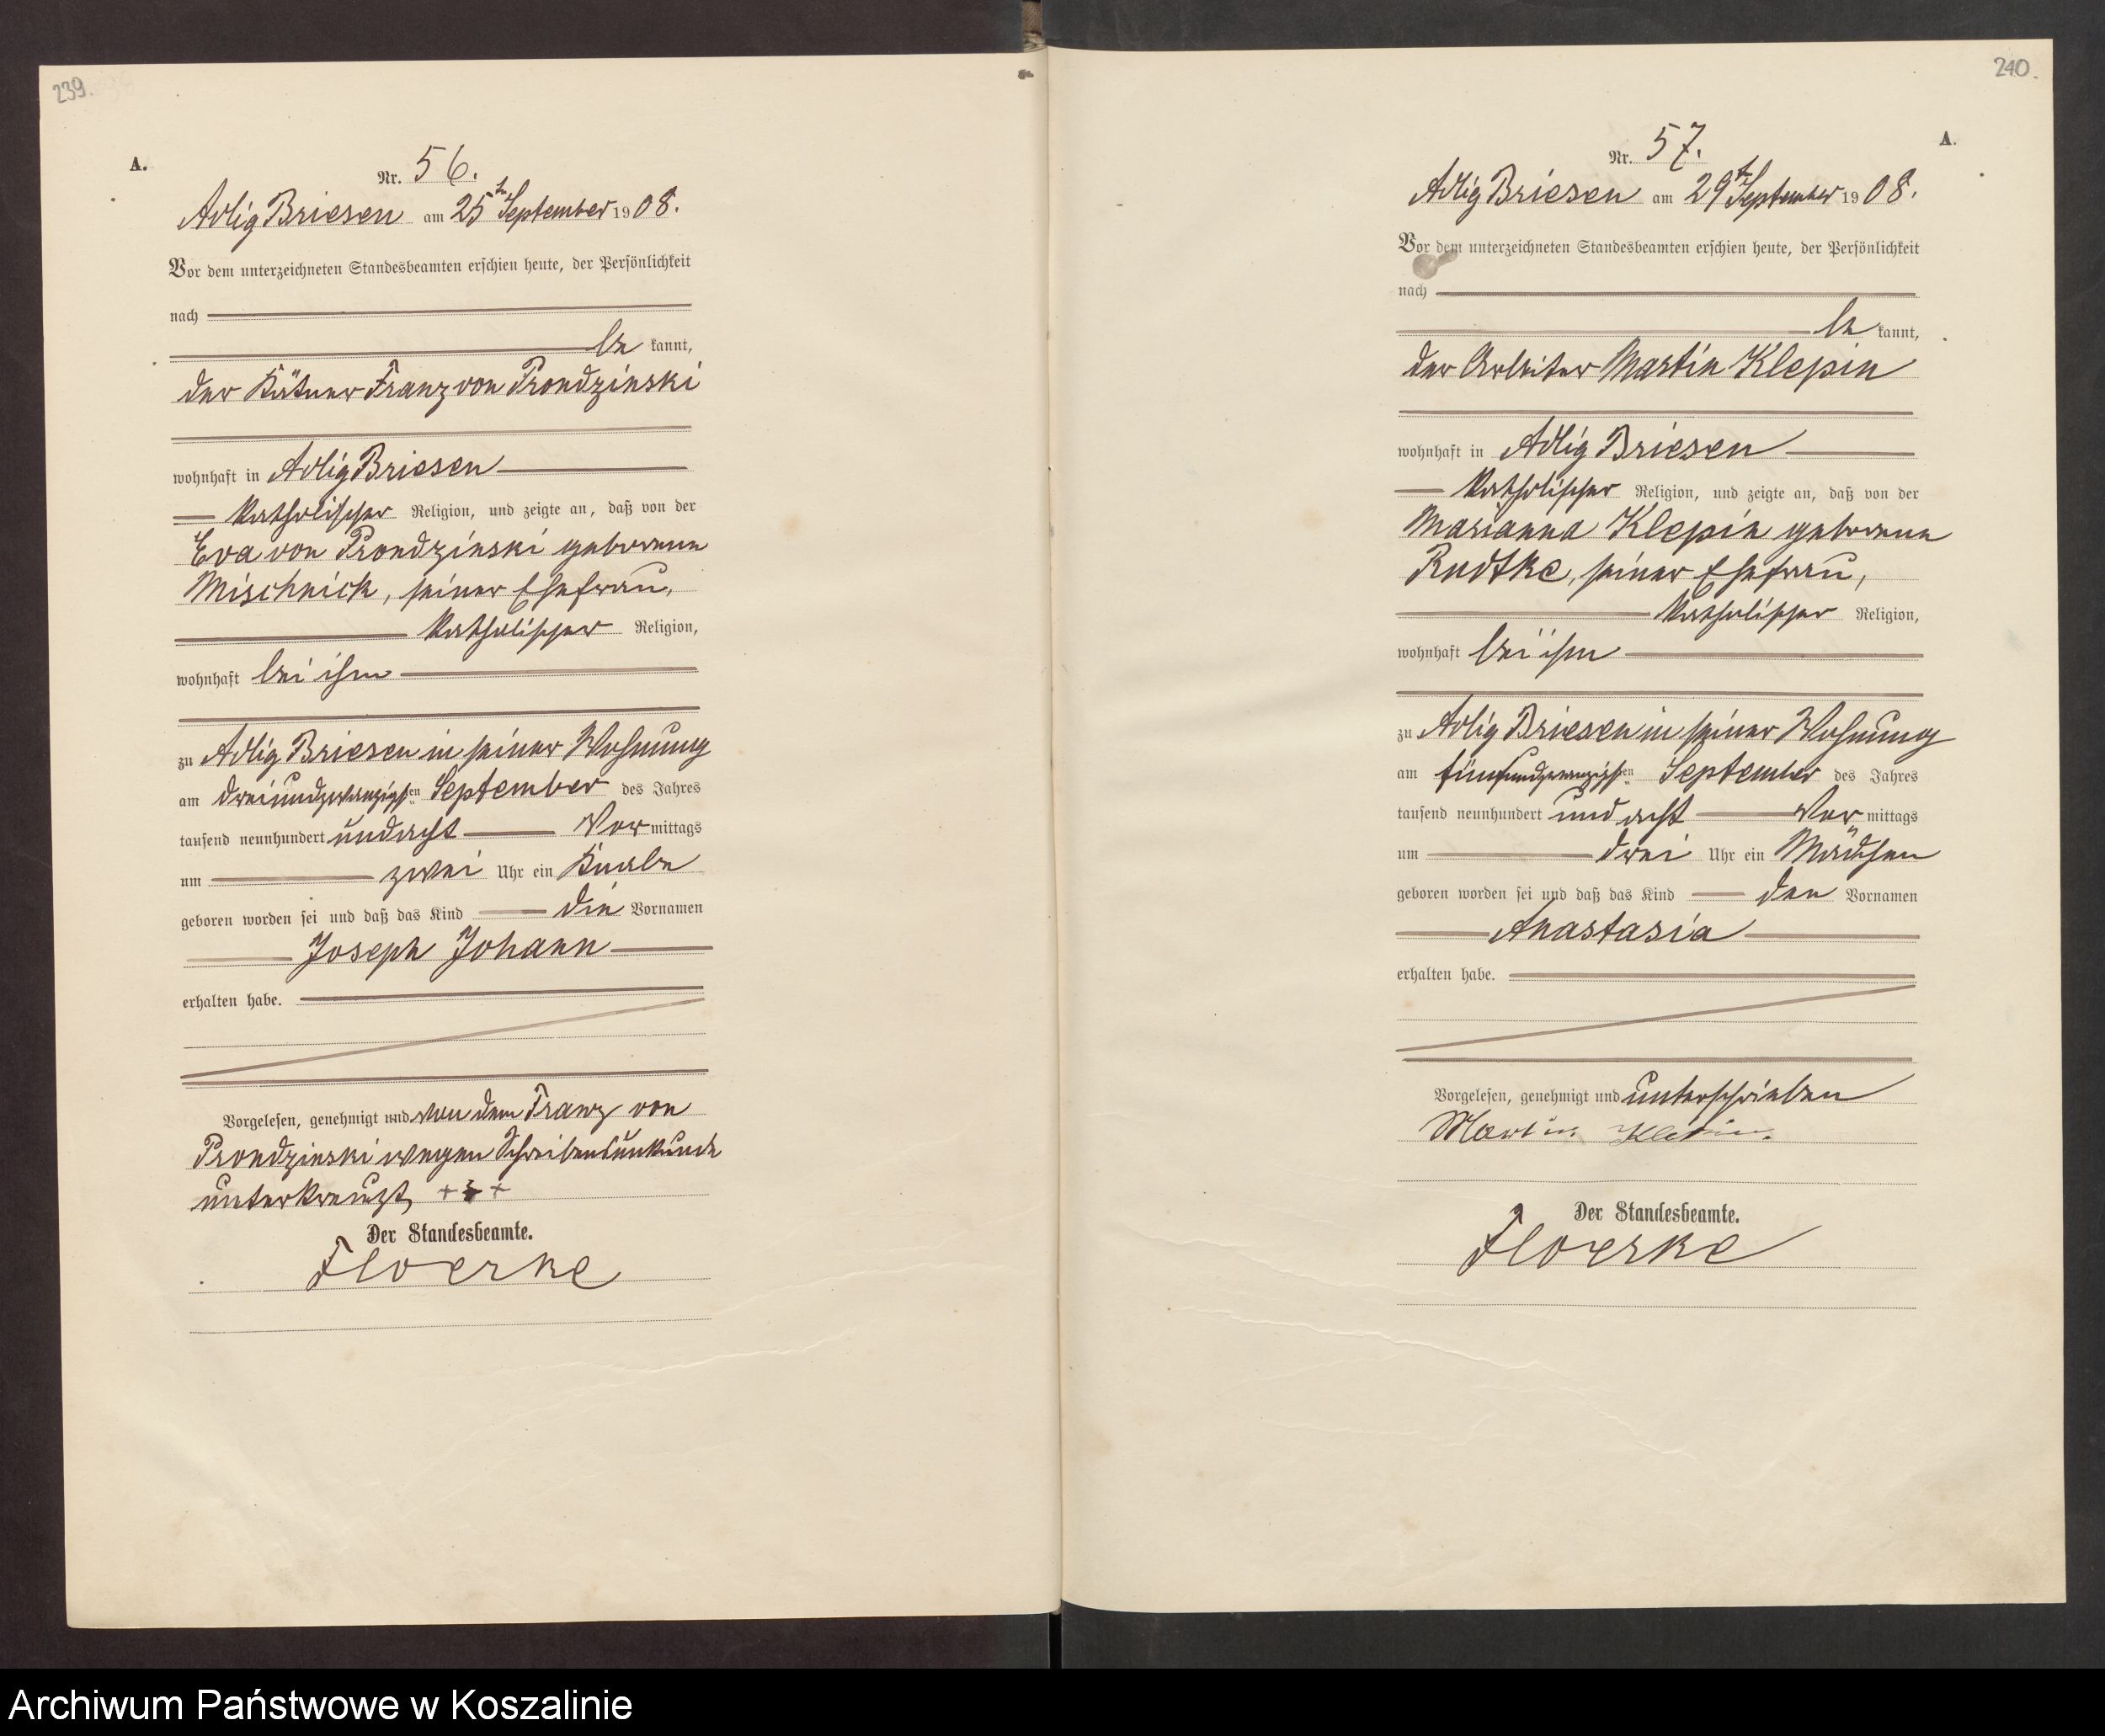 239.
A.
Nr. 56.
Adlig Briesen am 25ten September 1908.
Vor dem unterzeichneten Standesbeamten erschien heute, der Persönlichkeit
nach
be kannt,
der Kätner Franz von Prondzinski
wohnhaft in Adlig Briesen
katholischer Religion, und zeigte an, daß von der
Eva von Prondzinski geborene
Mischnick, seiner Ehefrau,
katholischer Religion,
wohnhaft bei ihm
zu Adlig Briesen in seiner Wohnung
am dreiundzwanzigsten September des Jahres
tausend neunhundert und acht Vor mittags
um zwei Uhr ein Knabe
geboren worden sei und daß das Kind die Vornamen
Joseph Johann
erhalten habe.
Vorgelesen, genehmigt und von dem Franz von
Prondzinski wegen Schreibensunkunde
unterkreuzt, + + +
Der Standesbeamte.
Floerke
240.
A.
Nr. 57.
Adlig Briesen am 29ten September 1908.
Vor dem unterzeichneten Standesbeamten erschien heute, der Persönlichkeit
nach
be kannt,
der Arbeiter Martin Klepin
wohnhaft in Adlig Briesen
katholischer Religion, und zeigte an, daß von der
Marianna Klepin geborene
Rudtke, seiner Ehefrau,
katholischer Religion,
wohnhaft bei ihm
zu Adlig Briesen in seiner Wohnung
am fünfundzwanzigsten September des Jahres
tausend neunhundert und acht Vor mittags
um drei Uhr ein Mädchen
geboren worden sei und daß das Kind den Vornamen
Anastasia
erhalten habe.
Vorgelesen, genehmigt und unterschrieben
Martin Klepin.
Der Standesbeamte.
Floerke
Archiwum Państwowe w Koszalinie